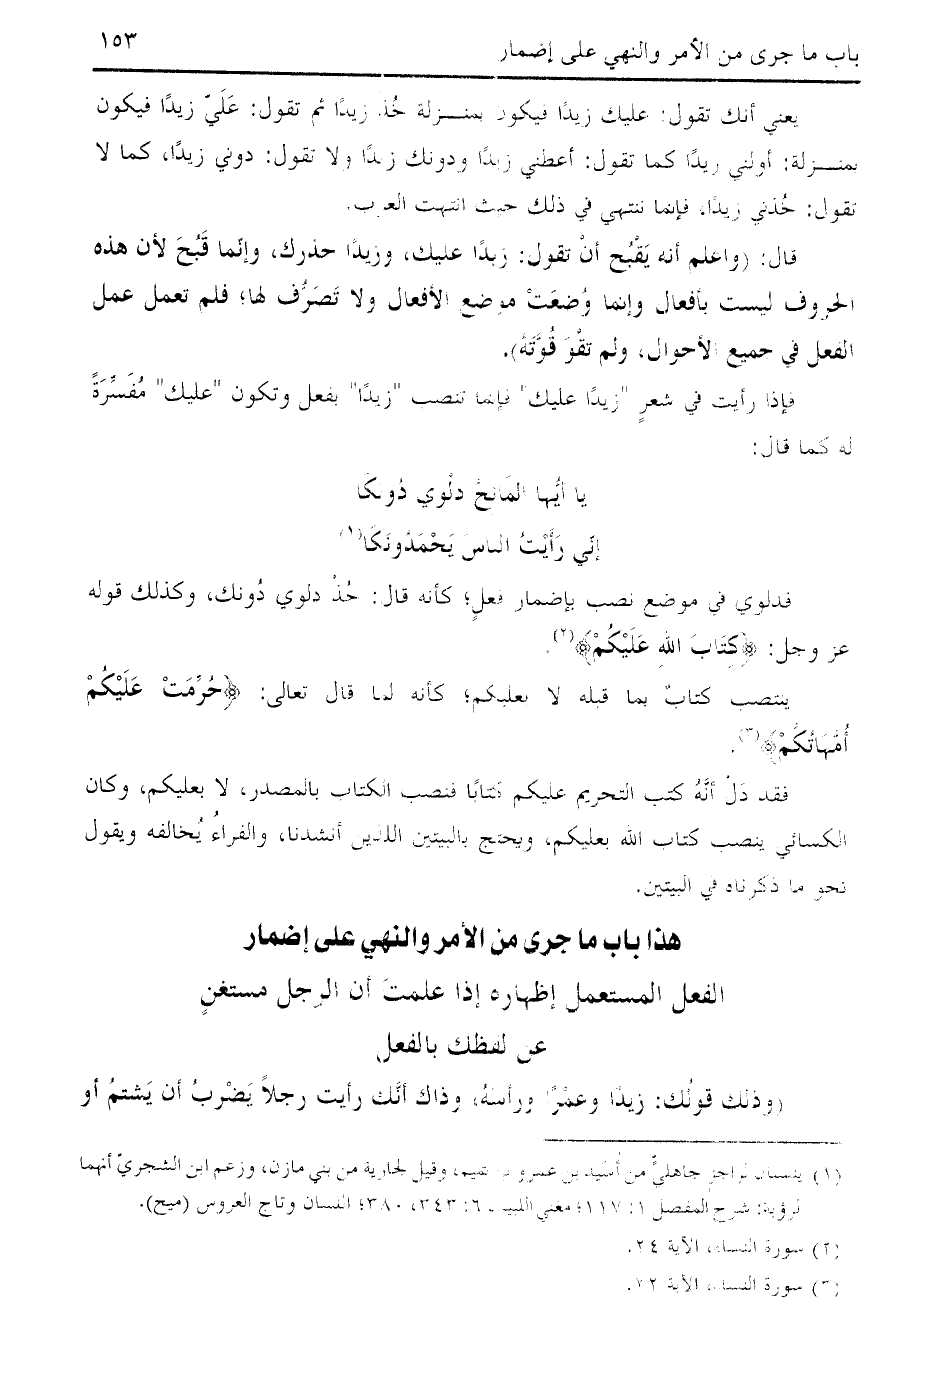 باب ما جرى من الأمر والنهي على إضمار ١٥٣
يعني أنك تقول: عليك زيدًا فيكون بمنـزلة خُذ زيدًا ثم تقول: عَلَيّ زيدًا فيكون
بمنـزلة: أولني زيدًا كما تقول: أعطني زيدًا ودونك زيدًا ولا تقول: دوني زيدًا، كما لا
تقول: خُذني زيدًا، فإنما ننتهي في ذلك حيث انتهت العرب.
قال: (واعلم أنه يَقْبُح أنْ تقول: زيدًا عليك، وزيدًا حذرك، وإنّما قَبُحَ لأن هذه
الحروف ليست بأفعال وإنما وُضعَتْ موضع الأفعال ولا تَصَرُّف لها؛ فلم تعمل عمل
الفعل في جميع الأحوال، ولم تقْوَ قُوَّتَهُ).
فإذا رأيت في شعرٍ "زيدًا عليك" فإنما تنصب "زيدًا" بفعل وتكون "عليك" مُفَسِّرَةً
له كما قال:
يا أيُّها المَائحُ دلْوي دُونكَا
إنّي رَأَيْتُ الناسَ يَحْمَدُونَكَا(١)
فدلوي في موضع نصب بإضمار فعلٍ؛ كأنه قال: خُذْ دلوي دُونك، وكذلك قوله
عز وجل: ﴿كِتَابَ اللهِ عَلَيْكُمْ﴾(٢).
ينتصب كتابٌ بما قبله لا بعليكم؛ كأنه لما قال تعالى: ﴿حُرِّمَتْ عَلَيْكُمْ
أُمَّهَاتُكُمْ﴾(٣).
فقد دَلّ أنَّهُ كتب التحريم عليكم كتابًا فنصب الكتاب بالمصدر، لا بعليكم، وكان
الكسائي ينصب كتاب الله بعليكم، ويحتج بالبيتين اللذين أنشدنا، والفراءُ يُخالفه ويقول
نحو ما ذكرناه في البيتين.
هذا باب ما جرى من الأمر والنهي على إضمار
الفعل المستعمل إظهاره إذا علمتَ أن الرجل مستغنٍ
عن لفظك بالفعل
(وذلك قولُك: زيدًا وعمْرًا ورأسَهُ، وذاك أنَّك رأيت رجلاً يَضْربُ أن يَشتمُ أو
(١) ينسبان لراجزٍ جاهليٍّ من أسَيد بن عمرو بن تميم، وقيل لجارية من بني مازن، وزعم ابن الشجريّ أنهما
لرؤبة: شرح المفصل ١: ١١٧؛ مغني اللبيب ٦: ٣٤٣، ٣٨٠؛ اللسان وتاج العروس (ميح).
(٢) سورة النساء، الآية ٢٤.
(٣) سورة النساء، الآية